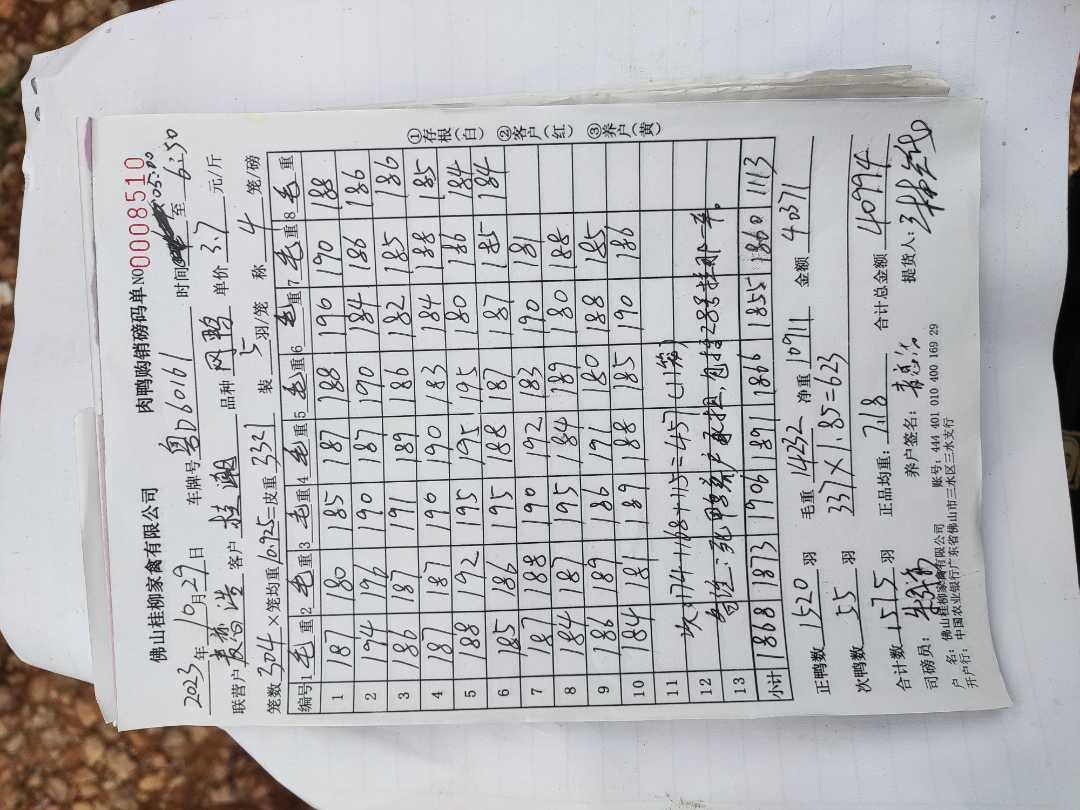 佛山桂柳家禽有限公司 肉鸭购销磅码单 NO 0008510
2023年10月29日 车牌号 粤D60161 时间 05:00 至 6:50
联营户 浩 客户 桂 品种 鸭 单价 3.7 元/斤
笼数 304 ×笼均重 10.925 =皮重 3321 装 5 羽/笼 称 4 笼/磅
编号 1 毛重 2 毛重 3 毛重 4 毛重 5 毛重 6 毛重 7 毛重 8 毛重
1 187 180 185 187 188 196 190 188
2 194 196 190 187 190 184 186 186
3 186 187 191 189 186 182 185 186
4 187 187 190 190 183 184 188 185
5 188 192 195 195 195 180 186 184
6 185 186 195 188 187 187 185 184
7 187 188 190 192 183 190 181
8 184 187 195 184 189 180 188
9 186 189 186 191 180 188 185
10 184 181 189 188 185 190 186
11 次:174+168+115=457(11笼)
12 备注:死鸭养户承担,包括28号挂网下车。
13
小计 1868 1873 1906 1891 1866 1855 1860 1113
正鸭数 1520 羽 毛重 14232 净重 10911 金额 40371
次鸭数 55 羽 337×1.85=623
合计数 1575 羽 正品均重: 7.18 合计总金额 40994
司磅员: 养户签名: 提货人:
户 名: 佛山桂柳家禽有限公司 账号: 444 401 010 400 169 29
开户行: 中国农业银行广东省佛山市三水区三水支行
①存根(白) ②客户(红) ③养户(黄)